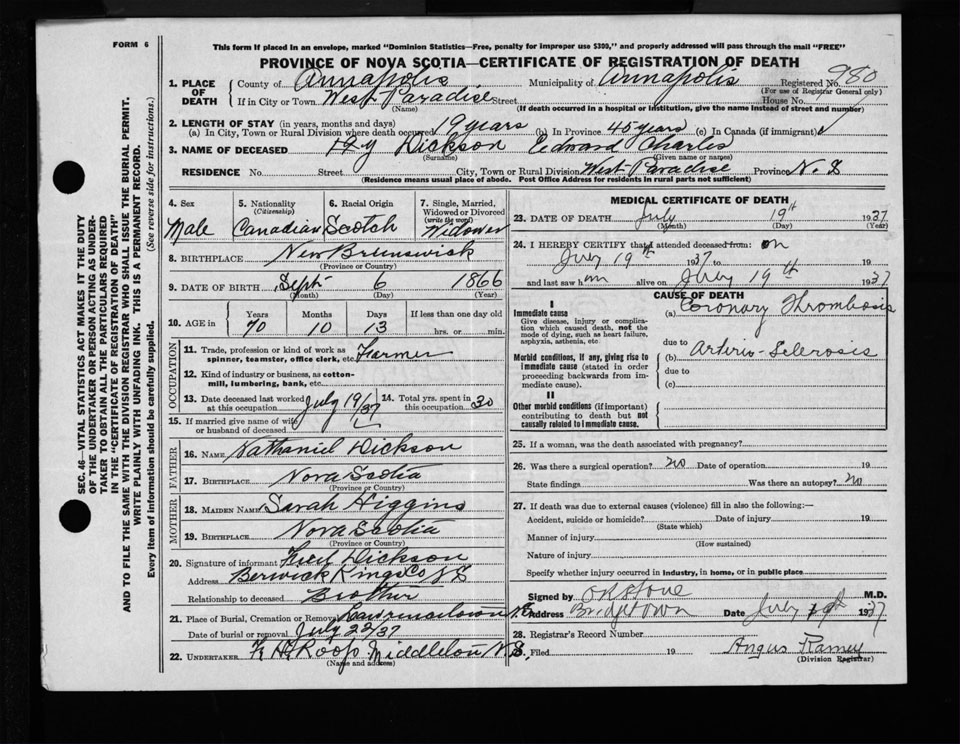 FORM 6
This form if placed in an envelope, marked "Dominion Statistics—Free, penalty for improper use $300," and properly addressed will pass through the mail "FREE"
PROVINCE OF NOVA SCOTIA—CERTIFICATE OF REGISTRATION OF DEATH
1. PLACE OF DEATH County of Annapolis Municipality of Annapolis Registered No. 980
(For use of Registrar General only)
If in City or Town West Paradise Street House No.
(Name) (If death occurred in a hospital or institution, give the name instead of street and number)
2. LENGTH OF STAY (in years, months and days)
(a) In City, Town or Rural Division where death occurred 19 years (b) In Province 45 years (c) In Canada (if immigrant)
3. NAME OF DECEASED Dickson Edward Charles
(Surname) (Given name or names)
RESIDENCE No. Street City, Town or Rural Division West Paradise Province N.S
(Residence means usual place of abode. Post Office Address for residents in rural parts not sufficient)
4. Sex Male
5. Nationality (Citizenship) Canadian
6. Racial Origin Scotch
7. Single, Married, Widowed or Divorced (write the word) Widower
8. BIRTHPLACE New Brunswick
(Province or Country)
9. DATE OF BIRTH Sept 6 1866
(Month) (Day) (Year)
10. AGE in Years Months Days If less than one day old
70 10 13 hrs. or min.
OCCUPATION
11. Trade, profession or kind of work as spinner, teamster, office clerk, etc. Farmer
12. Kind of industry or business, as cotton-mill, lumbering, bank, etc.
13. Date deceased last worked at this occupation July 19/37
14. Total yrs. spent in this occupation 30
15. If married give name of wife or husband of deceased
FATHER
16. NAME Nathaniel Dickson
17. BIRTHPLACE Nova Scotia
(Province or Country)
MOTHER
18. MAIDEN NAME Sarah Higgins
19. BIRTHPLACE Nova Scotia
(Province or Country)
20. Signature of informant Dickson
Address Berwick Kings Co N S
Relationship to deceased Brother
21. Place of Burial, Cremation or Removal Lawrencetown N.S.
Date of burial or removal July 22/37
22. UNDERTAKER Roop Middleton N.S.
(Name and address)
MEDICAL CERTIFICATE OF DEATH
23. DATE OF DEATH July 19th 1937
(Month) (Day) (Year)
24. I HEREBY CERTIFY that I attended deceased from: on
July 19th 1937 to 19
and last saw him alive on July 19th 1937
CAUSE OF DEATH
I
Immediate cause
Give disease, injury or complication which caused death, not the mode of dying, such as heart failure, asphyxia, asthenia, etc.
(a) Coronary Thrombosis
due to
Morbid conditions, if any, giving rise to immediate cause (stated in order proceeding backwards from immediate cause).
(b) Arterio-Sclerosis
due to
(c)
II
Other morbid conditions (if important) contributing to death but not causally related to immediate cause.
25. If a woman, was the death associated with pregnancy?
26. Was there a surgical operation? no Date of operation 19
State findings Was there an autopsy? no
27. If death was due to external causes (violence) fill in also the following:—
Accident, suicide or homicide? Date of injury 19
(State which)
Manner of injury
(How sustained)
Nature of injury
Specify whether injury occurred in industry, in home, or in public place
Signed by M.D.
Address Bridgetown Date July 1937
28. Registrar's Record Number
Filed 19 Angus Ramey
(Division Registrar)
SEC. 46—VITAL STATISTICS ACT MAKES IT THE DUTY
OF THE UNDERTAKER OR PERSON ACTING AS UNDERTAKER TO OBTAIN ALL THE PARTICULARS REQUIRED
IN THE "CERTIFICATE OF REGISTRATION OF DEATH"
AND TO FILE THE SAME WITH THE DIVISION REGISTRAR WHO SHALL ISSUE THE BURIAL PERMIT.
WRITE PLAINLY WITH UNFADING INK. THIS IS A PERMANENT RECORD.
Every item of information should be carefully supplied. (See reverse side for instructions.)